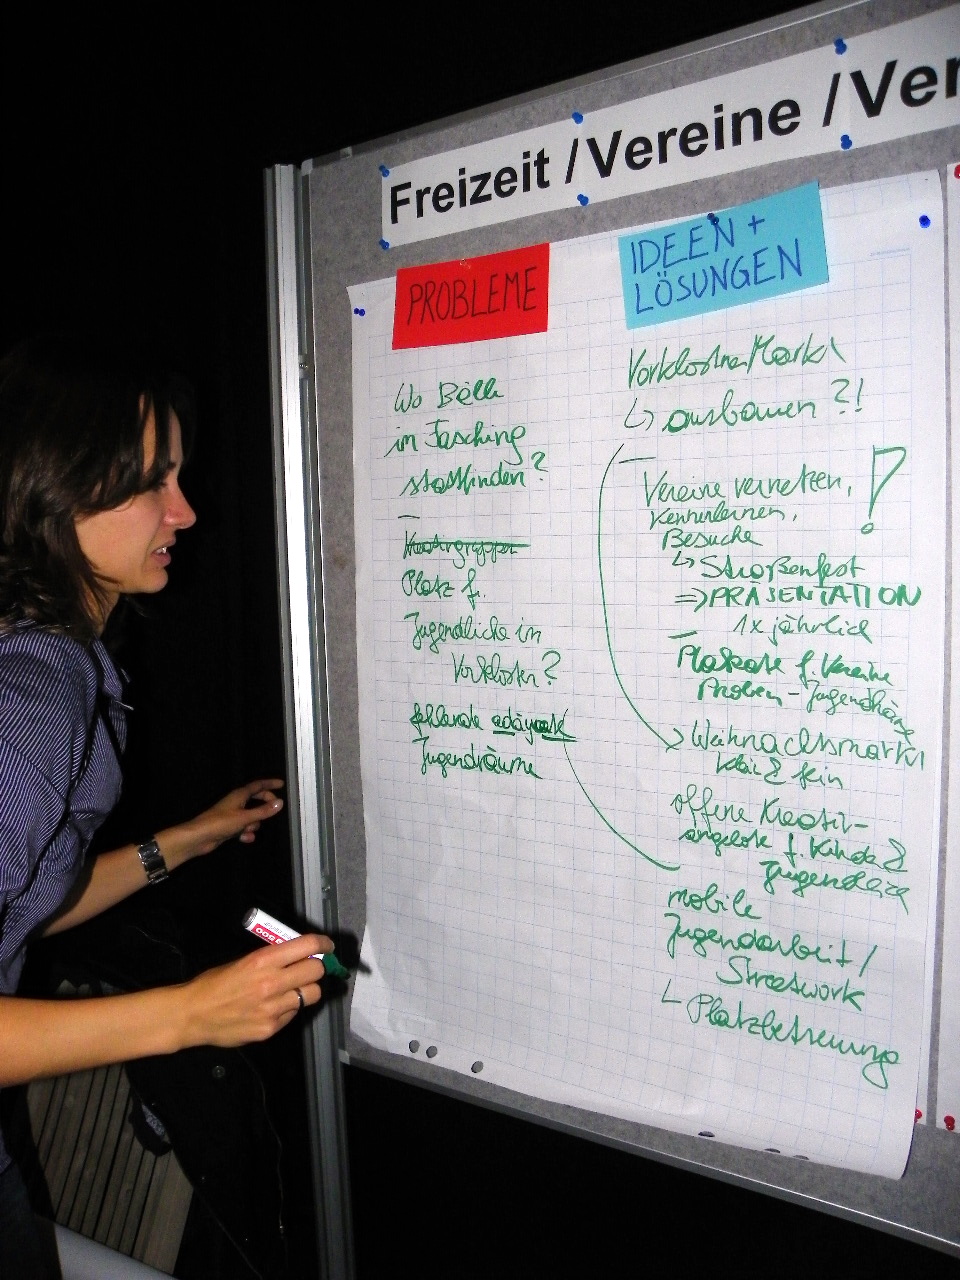 Freizeit / Vereine / Ver
PROBLEME
IDEEN +
LÖSUNGEN
Wo Bälle
im Fasching
stattfinden?
Platz f.
Jugendliche im
Vorkloster?
fehlende adäquate
Jugendräume
Vorklostner Markt
↳ ausbauen?!
Vereine vernetzen, !
kennenlernen,
Besuche
↳ Straßenfest
⇒ PRÄSENTATION
1x jährlich
Plakate f. Vereine
Proben - Jugendhäng
→ Weihnachtsmarkt
klein & fein
offene Kreativ-
angebote f. Kinder &
Jugendliche
mobile
Jugendarbeit /
Streetwork
↳ Platzbetreuung